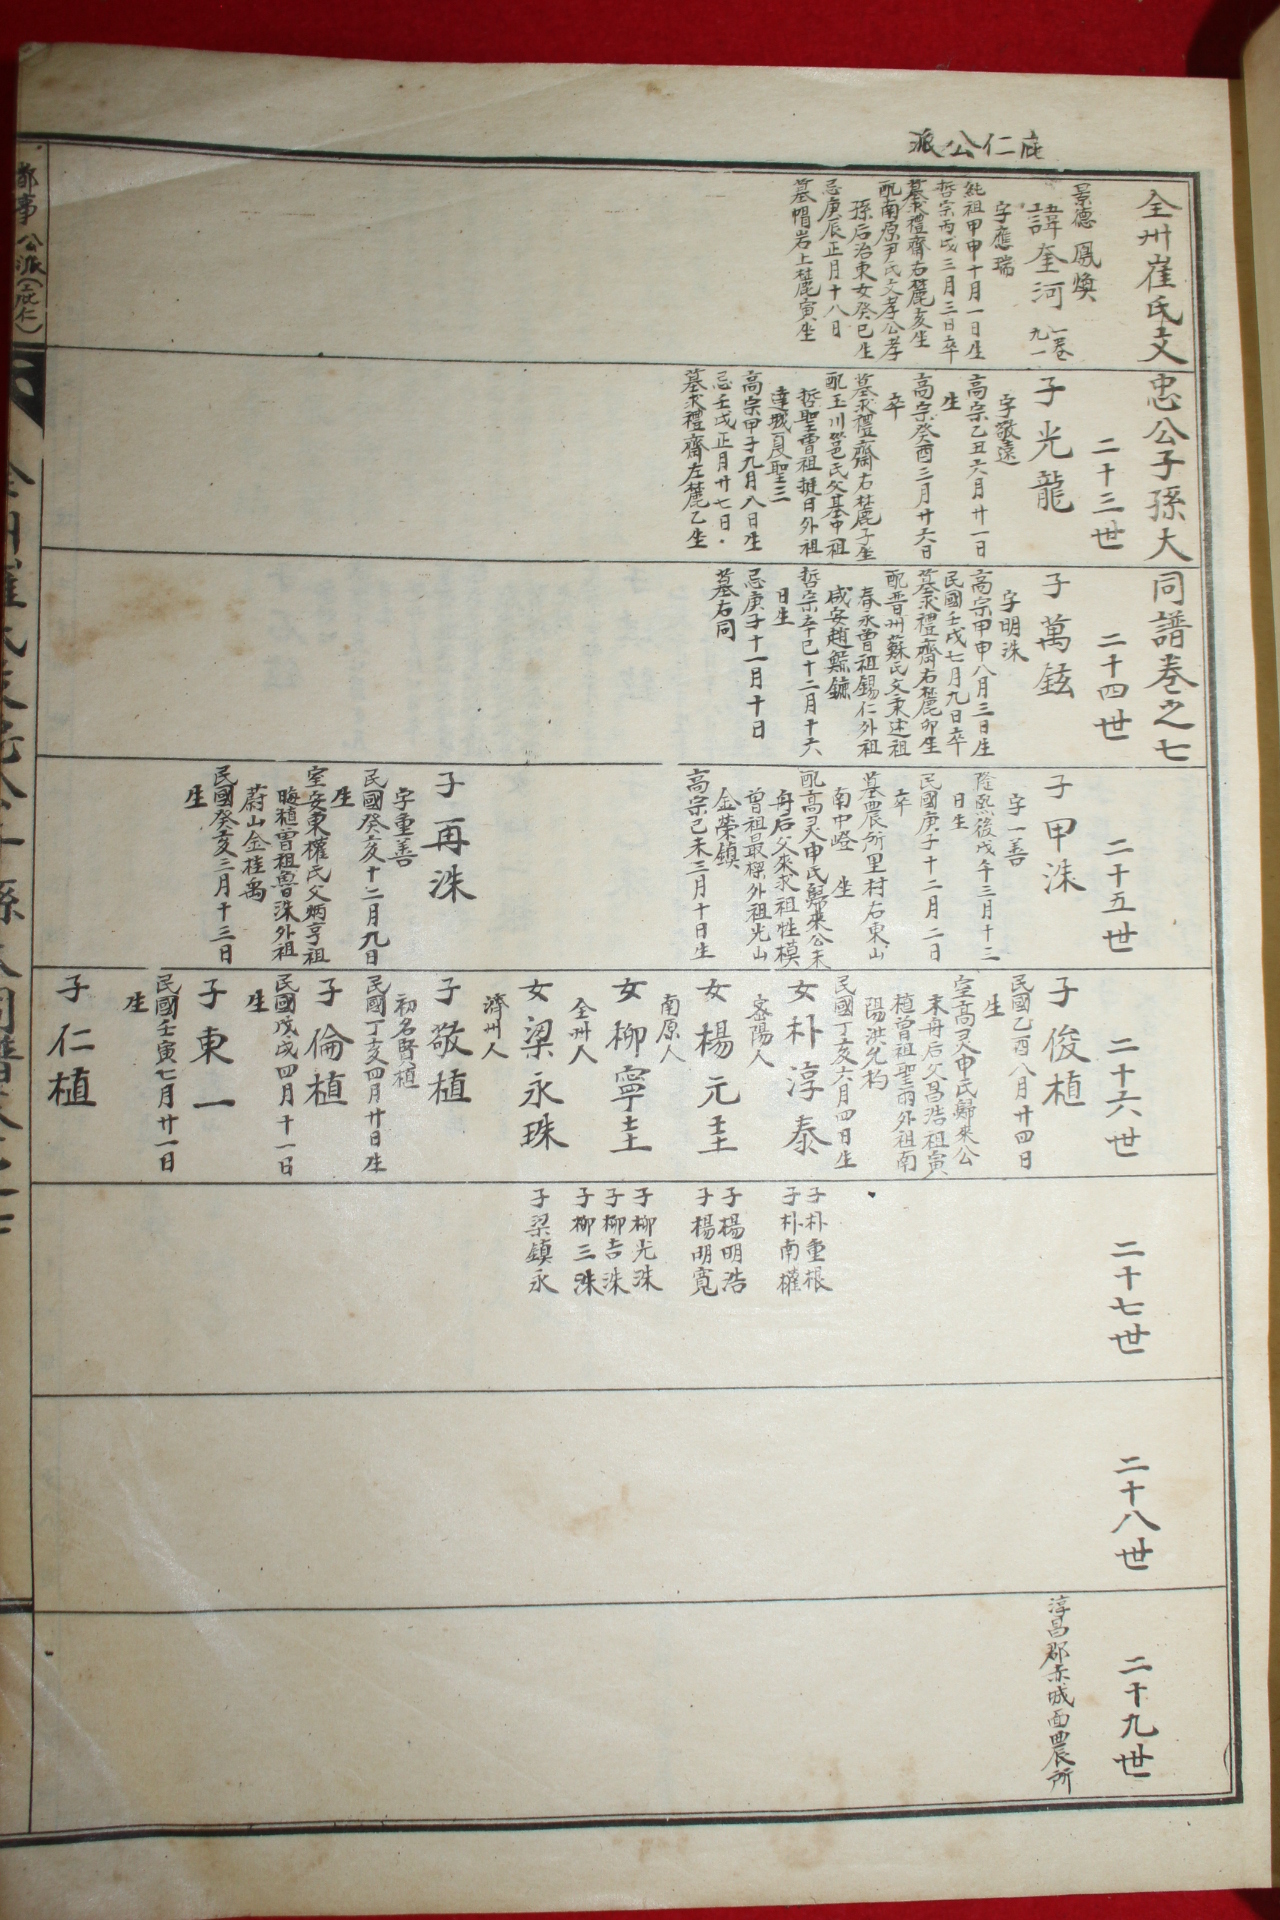 庇仁公派
全州崔氏文忠公子孫大同譜卷之七
景德 鳳煥
諱奎河 一卷九一
字應瑞
純祖甲申十月一日生
哲宗丙戌三月三日卒
墓求禮齋右麓亥坐
配南原尹氏父孝公孝
孫后治東女癸巳生
忌庚辰正月十八日
墓帽岩上麓寅坐
二十三世
子光龍
字敬遠
高宗乙丑六月廿一日
生
高宗癸酉三月廿六日
卒
墓求禮齋右麓子坐
配玉川邕氏父基中祖
哲聖曾祖挺日外祖
達城夏聖三
高宗甲子九月八日生
忌壬戌正月廿七日
墓求禮齋左麓乙坐
二十四世
子萬鉉
字明洙
高宗甲申八月三日生
民國壬戌七月九日卒
墓求禮齋右麓卯坐
配晋州蘇氏父秉述祖
春永曾祖錫仁外祖
咸安趙鏞
哲宗辛巳十二月十六
日生
忌庚子十一月十日
墓右同
二十五世
子甲洙
字一善
隆熙後戊午三月十三
日生
民國庚子十二月二日
卒
墓農所里村右東山
南中嶝 坐
配高灵申氏歸來公末
舟后父來求祖性模
曾祖最樑外祖光山
金榮鎮
高宗己未三月十日生
子再洙
字重善
民國癸亥十二月九日
生
室安東權氏父炳亨祖
晦稙曾祖魯洙外祖
蔚山金桂禹
民國癸亥三月十三日
生
二十六世
子俊植
民國乙酉八月廿四日
生
室高灵申氏歸來公
末舟后父昌浩祖寅
植曾祖聖雨外祖南
陽洪允杓
民國丁亥六月四日生
女朴淳泰
密陽人
女楊元圭
南原人
女柳寧圭
全州人
女梁永珠
濟州人
子敬植
初名賢植
民國丁亥四月廿日生
子倫植
民國戊戌四月十一日
生
子東一
民國壬寅七月廿一日
生
子仁植
二十七世
子朴重根
子朴南權
子楊明浩
子楊明寬
子柳光洙
子柳吉洙
子柳三洙
子梁鎮永
二十八世
二十九世
淳昌郡赤城面農所
都事公派(庇仁)